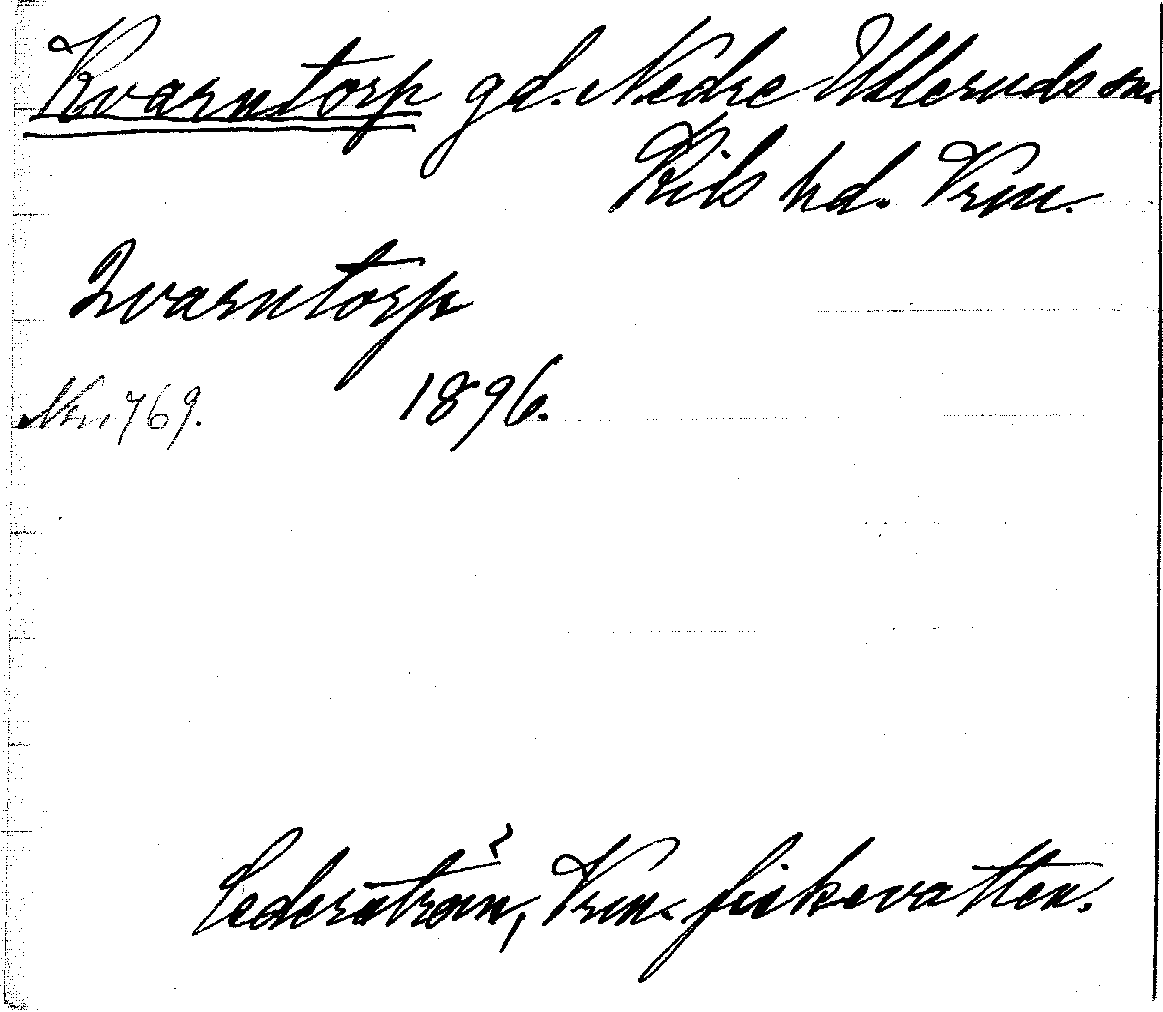 Kvarntorp gd. Nedre Ulleruds sn.
Kils hd. Vrm.
Qvarntorp
Nr. 769. 1896.
Cederström, Vrm. fiskevatten.